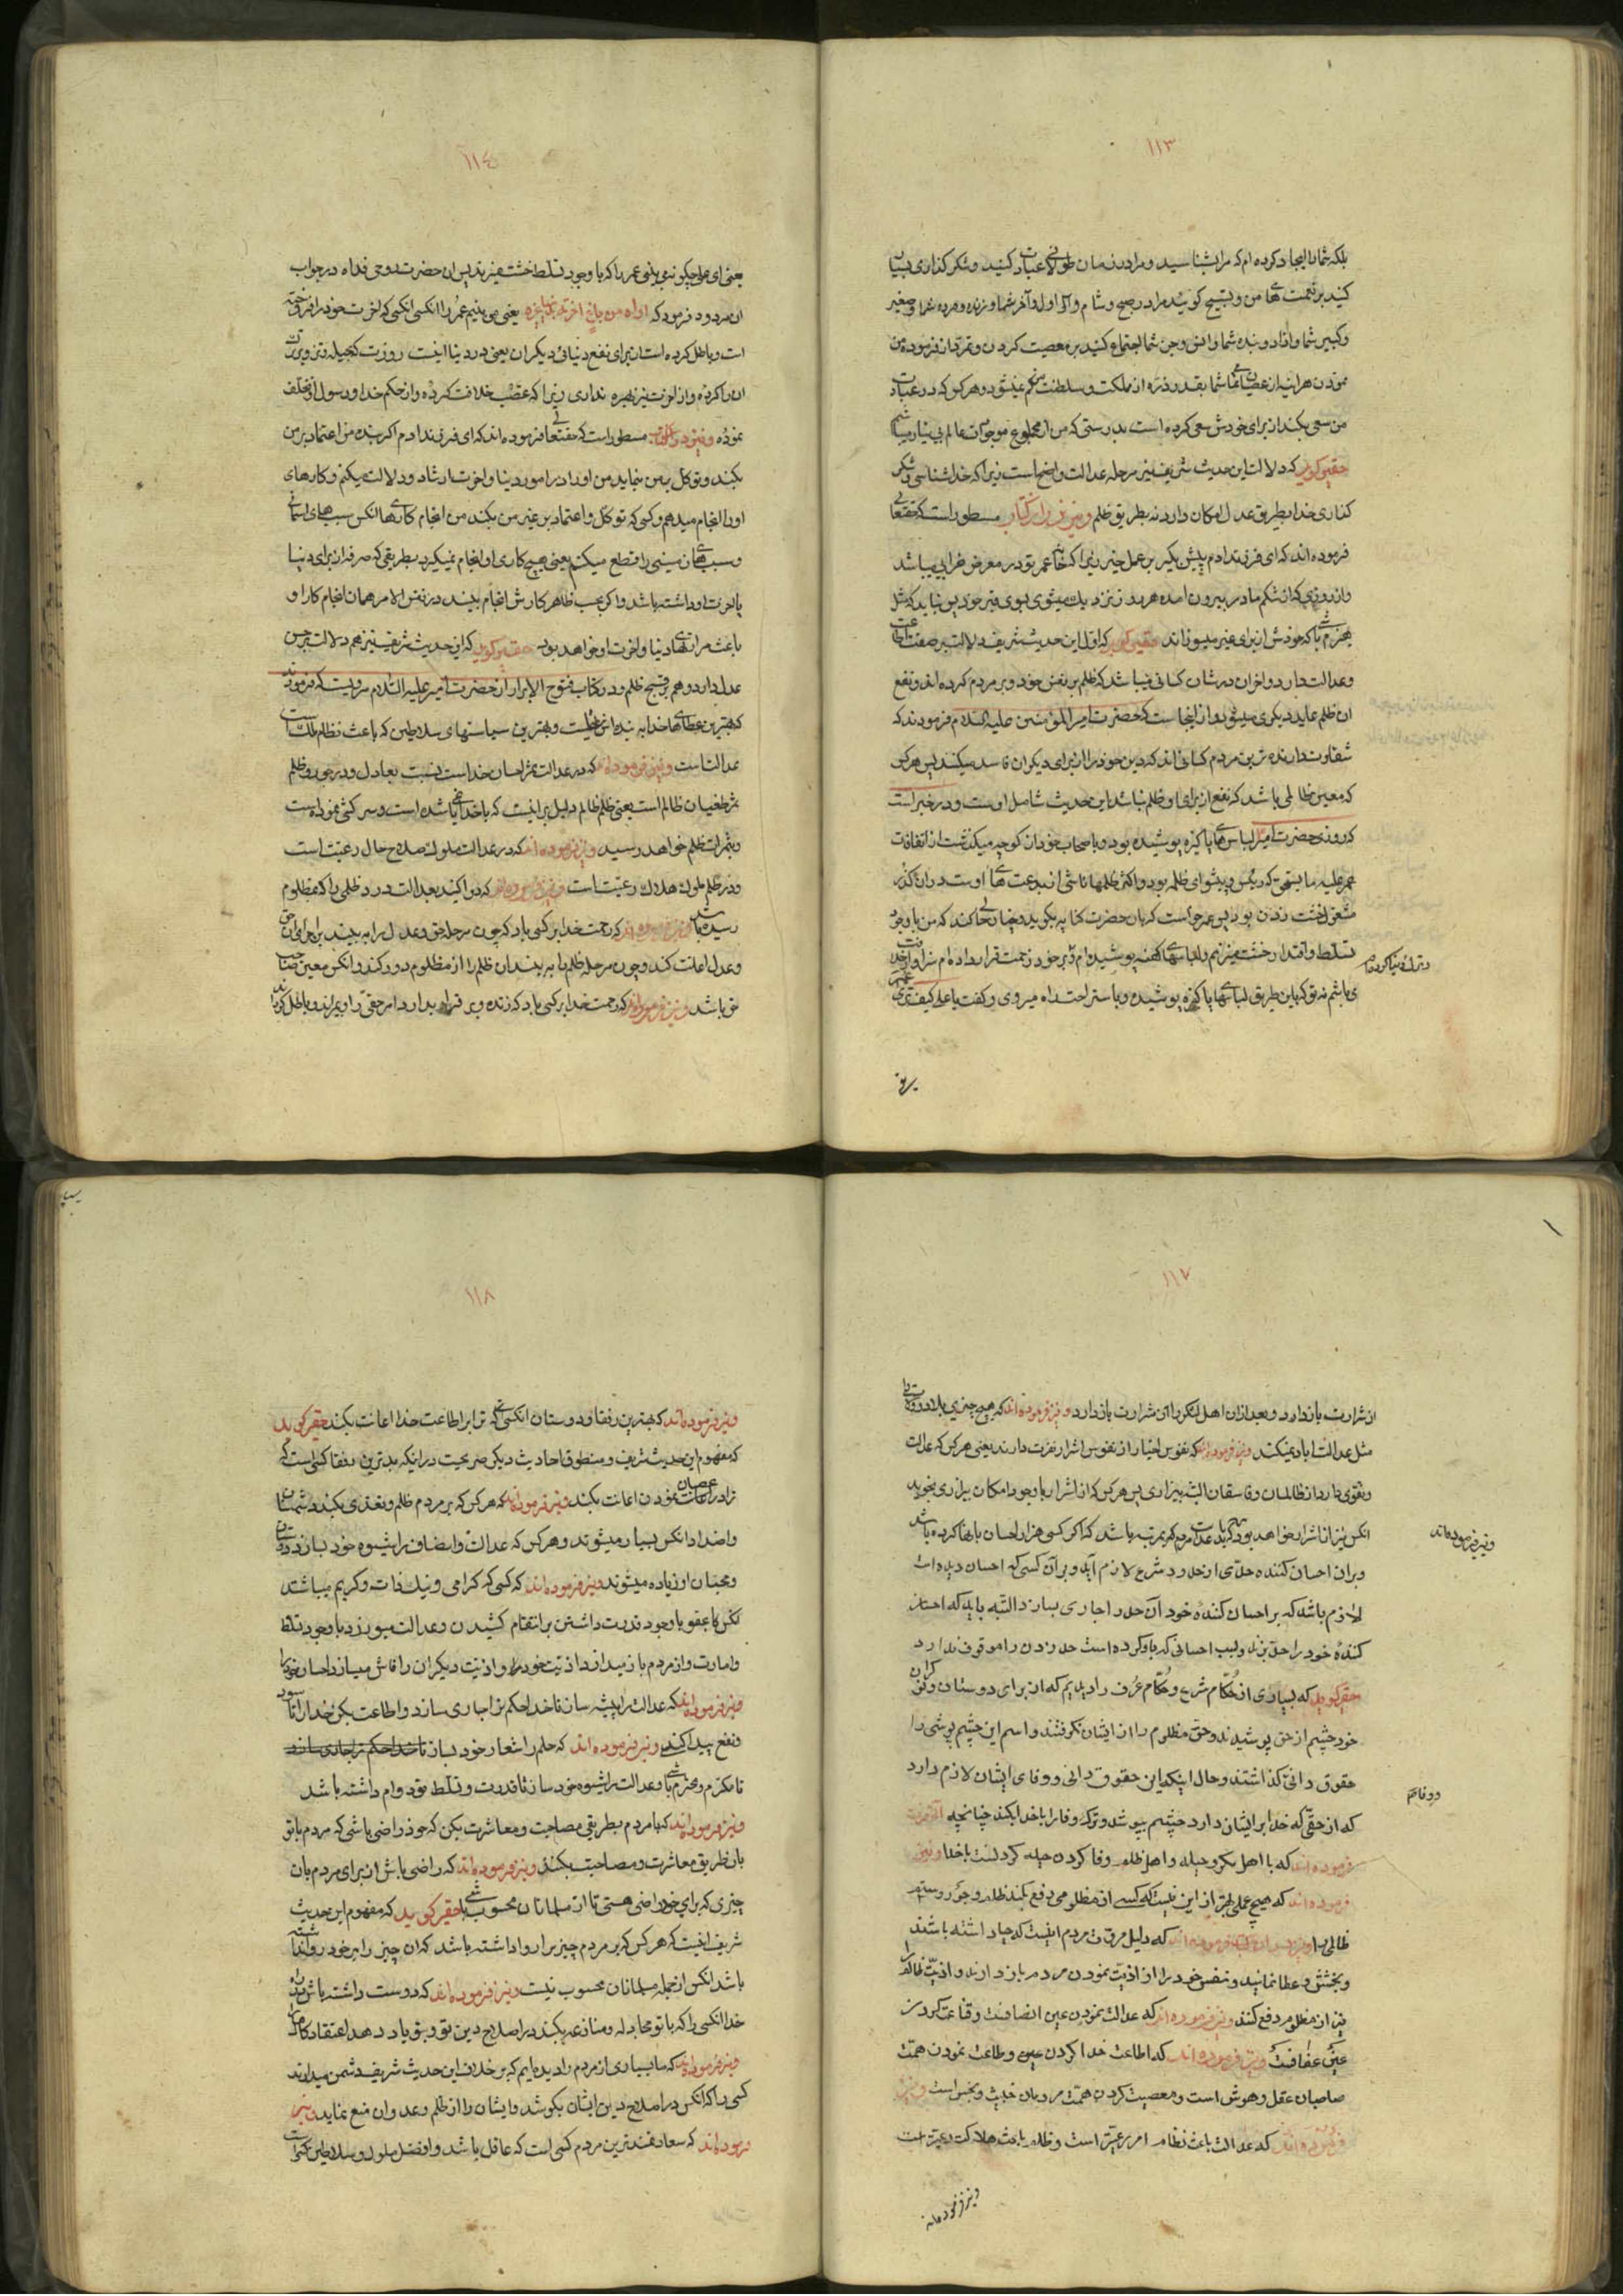 ١١٣
بلکه شما را ایجاد کرده‌ام که مرا بشناسید و مرا در زمان طولانی عبادت کنید و شکر گذاری بسیار
کنید بر نعمت های من و تسبیح گوئید مرا در صبح و شام و اگر اول و آخر شما و زنده و مرده شما و صغیر
و کبیر شما و آزاد و بنده شما و انس و جن شما اجتماع کنید بر معصیت کردن و تمرد از فرموده من
نمودن هر اینه از عصیان شما بقدر ذره از مملکت و سلطنت من کم نمیشود و هر کس که در عبادت
من سعی بکند از برای خودش سعی کرده است بدرستی که من از مجموع موجودات عالم بی نیاز میباشم
حقیر گوید که دلالت این حدیث شریف نیز بر مرحله عدالت واضح است زیرا که خدا شناسی و شکر
گذاری خدا بطریق عدل امکان دارد نه بطریق ظلم و نیز در آن کتاب مسطور است که حقتعالی
فرموده اند که ای فرزند آدم پیش بگیر بر عمل خیر زیرا که خانه عمر تو در معرض خرابی میباشد
و از روزی که از شکم مادر بیرون آمده هر روز نزدیک میشوی بسوی قبر خود پس نباید که مثل
هیزم باشی که خودش از برای غیر میسوزاند حقیر گوید که اول این حدیث شریف دلالت بر صفت اطاعت
و عدالت دارد و آخر آن در شان کسانی میباشد که ظلم بر نفس خود و بر مردم کرده اند و نفع
آن ظلم عاید دیگری میشود و از اینجاست که حضرت امیر المؤمنین علیه السلام فرمودند که
شقاوت دارنده ترین مردم کسانی اند که دین خود را از برای دیگران فاسد میکنند پس هر کس
که معین ظالمی باشد که نفع از برای او ظلم نباشد این حدیث شامل اوست و در خبر است
که روزی حضرت امیر لباس های پاکیزه پوشیده بود و با صحاب خود از کوچه میگذشت از اتفاقات
عمر علیه ما یستحق که رئیس و پیشوای ظلمه بود و اکثر ظلمها ناشی از بدعت های اوست در آن گذر
مشغول خشت زدن بود پس عمر خواست که بآن حضرت کنایه بگوید و چنان حالی کند که من با وجود
تسلط و اقتدار خشت میزنم و لباسهای کهنه پوشیده‌ام و بر خود زحمت قرار داده ام سزاوار خلافت
و ترک دنیا کرده‌ام
می باشم نه تو که باین طریق لباسهای پاکیزه پوشیده و با ستراحت راه میروی و گفت یا علی کیف تری عمر
یعنی
١١٤
یعنی ای علی چگونه می بینی عمر را که با وجود تسلط خشت میزند پس آن حضرت روحی فداه در جواب
آن مردود فرمود که اراه من باع آخرته بدنیا غیره یعنی می بینم عمر را آنکسی که آخرت خود را فروخته
است و باطل کرده است از برای نفع دنیائی دیگران یعنی در دنیا اینست روزیت که بحیله و تزویر
آن را کرده و از آخرت نیز بهره نداری زیرا که غصب خلافت کرده و از حکم خدا و رسول او تخلف
نموده و نیز در آن کتاب مسطور است که حقتعالی فرموده اند که ای فرزند آدم اگر بنده من اعتماد بر من
بکند و توکل بمن نماید من او را در امور دنیا و آخرت ارشاد و دلالت میکنم و کارهای
او را انجام میدهم و کسی که توکل و اعتماد بر غیر من بکند من انجام کارهای آنکس سببهای آسمانی
و سببهای زمینی را قطع میکنم یعنی هیچ کاری او انجام نمیگیرد بطریقی که صرفه از برای دنیا
یا آخرت او داشته باشد و اگر بحسب ظاهر کارش انجام بیند در نفس الامر همان انجام کار او
باعث مرارتهای دنیا و آخرت او خواهد بود حقیر گوید که این حدیث شریف نیز هم دلالت بر حسن
عدل دارد و هم بر قبح ظلم و در کتاب فتوح الابرار از حضرت امیر علیه السّلام مرویست که فرمودند
که بهترین عطاهای خدا به بنده اش عقلست و بهترین سیاستهای سلاطین که باعث نظام ملک است
عدالت است و نیز فرموده‌اند که در عدالت ثمر احسان خداست نسبت بعادل و در جور و ظلم
ثمر طغیان ظالم است یعنی ظلم ظالم دلیل بر اینست که با خدا یاغی شده است و سرکشی نموده است
و بثمرات ظلم خواهد رسید و نیز فرموده اند که در عدالت ملوک صلاح حال رعیت است
و در ظلم ملوک هلاک رعیت است و نیز فرموده اند که دوا کنید بعدالت درد ظلمی را که بمظلوم
رسیده باشد و نیز فرموده اند که رحمت خدا بر کسی باد که چون مرحله حق و عدل را به بیند بر اجرای آن حق
و عدل اعانت کند و چون مرحله ظلم را به بیند آن ظلم را از مظلوم دور کند و آنکس معین صاحب
حق باشد و نیز فرموده‌اند که رحمت خدا بر کسی باد که زنده و بر قرار بدارد امر حقی را و بمیراند و باطل گرداند
١١٧
از شرارت باز دارد و بعد از آن اهل لنگر را از شرارت باز دارد و نیز فرموده اند که هیچ چیزی بلاد و ولایت را
مثل عدالت آباد نمیکند و نیز فرموده اند که نفوس اخیار از نفوس اشرار نفرت دارند یعنی هر کس که عدالت
و تقوی دارد از ظالمان و فاسقان البته بیزار است پس هر کس که از اشرار با وجود امکان بیزاری نجوید
آنکس نیز از اشرار خواهد بود که باید عدالت مردم بمرتبه باشد که اگر کسی هزار احسان با بها کرده باشد
و نیز فرموده‌اند
و بر آن احسان کننده حدّی از حدود شرع لازم آید و بر آن کسی که احسان دیده است
لازم باشد که بر احسان کنندهٔ خود آن حد را جاری سازد البته باید که احسان
کنندهٔ خود را حد بزند و بسبب احسانی که باو کرده است حد زدن را موقوف ندارد
حقیر گوید که بسیاری از حُکّام شرع و حُکّام عُرف را دیدیم که از برای دوستان و نوکران
خود چشم از حق پوشیدند و حق مظلوم را از ایشان نگرفتند و اسم این چشم پوشی را
حقوق دانی گذاشتند و حال اینکه این حقوق دانی و وفای ایشان لازم دارد
که از حقی که خدا بر ایشان دارد چشم بپوشند و ترک وفا را با خدا بکنند چنانچه آنحضرت
فرموده اند که با اهل مکر و حیله و اهل ظلم وفا کردن حیله کردنست با خدا و نیز
فرموده اند که هیچ عملی بهتر از این نیست که کسی از مظلومی دفع بکند ظلم و جور و ستم
ظالمی را و نیز فرموده اند که دلیل مروّت مردم اینست که حیا داشته باشند
و بخشش و عطا نمایند و نفس خود را از اذیّت نمودن مردم باز دارند و اذیّت ظالم را
نیز از مظلوم دفع کنند و نیز فرموده اند که عدالت نمودن عین انصافست و قناعت کردن
عین عفافست و نیز فرموده‌اند که اطاعت خدا کردن و طاعت نمودن همت
صاحبان عقل و هوش است و معصیت کردن همت مردمان خبیث و نجس است و نیز
فرموده اند که عدالت باعث نظام امر رعیت است و ظلم باعث هلاکت رعیت است
و نیز فرموده‌اند
١١٨
و نیز فرموده‌اند که بهترین رفقا و دوستان آنکسی که ترا بر اطاعت خدا اعانت بکند حقیر گوید
که مفهوم این حدیث شریف و منطوق احادیث دیگر صریحست در اینکه بدترین رفقا کسی است که
ترا در عصیان نمودن اعانت بکند و نیز فرموده‌اند که هر کس که بر مردم ظلم و تعدی بکند دشمنان
و اضداد آنکس بسیار میشوند و هر کس که عدالت و انصاف را شیوه خود سازد دوستان
و محبّان او زیاده میشوند و نیز فرموده اند که کسی که گرامی و نیک ذات و کریم میباشد
آنکس با عفو با وجود قدرت داشتن بر انتقام کشیدن و عدالت میورزد با وجود تسلط
و امارت و از مردم باز میدارد اذیت خود را و اذیت دیگران را فاش میسازد احسان خود را
و نیز فرموده‌اند که عدالت را پیشه ساز تا خدا حکم ترا جاری سازد و اطاعت بکن خدا را تا سود
و نفع پیدا کنی و نیز فرموده اند که حلم را شعار خود بساز تا خدا حکم ترا جاری سازد
تا مکرم و محترم باشی و عدالت را شیوه خود ساز تا قدرت و تسلط تو دوام داشته باشد
و نیز فرموده‌اند که با مردم بطریقی مصاحبت و معاشرت بکن که خود راضی باشی که مردم با تو
بآن طریق معاشرت و مصاحبت بکنند و نیز فرموده اند که راضی باش از برای مردم بآن
چیزی که برای خود راضی هستی تا از مسلمانان محسوب باشی حقیر گوید که مفهوم این حدیث
شریف اینست که هر کس که بر مردم چیزیرا روا داشته باشد که آن چیز را بر خود روا نداشته
باشد آنکس از جمله مسلمانان محسوب نیست و نیز فرموده اند که دوست داشته باش در راه
خدا آنکسی را که با تو مجادله و منازعه بکند در اصلاح دین تو و بتو یاد دهد اعتقاد کامل
و نیز فرموده‌اند که ما بسیاری از مردم را دیده ایم که بر خلاف این حدیث شریف دشمن میدارند
کسی را که آنکس در اصلاح دین ایشان بکوشد و ایشان را از ظلم و عدوان منع نماید و نیز
فرموده‌اند که سعادتمندترین مردم کسی است که عاقل باشد و افضل ملوک و سلاطین کسی است